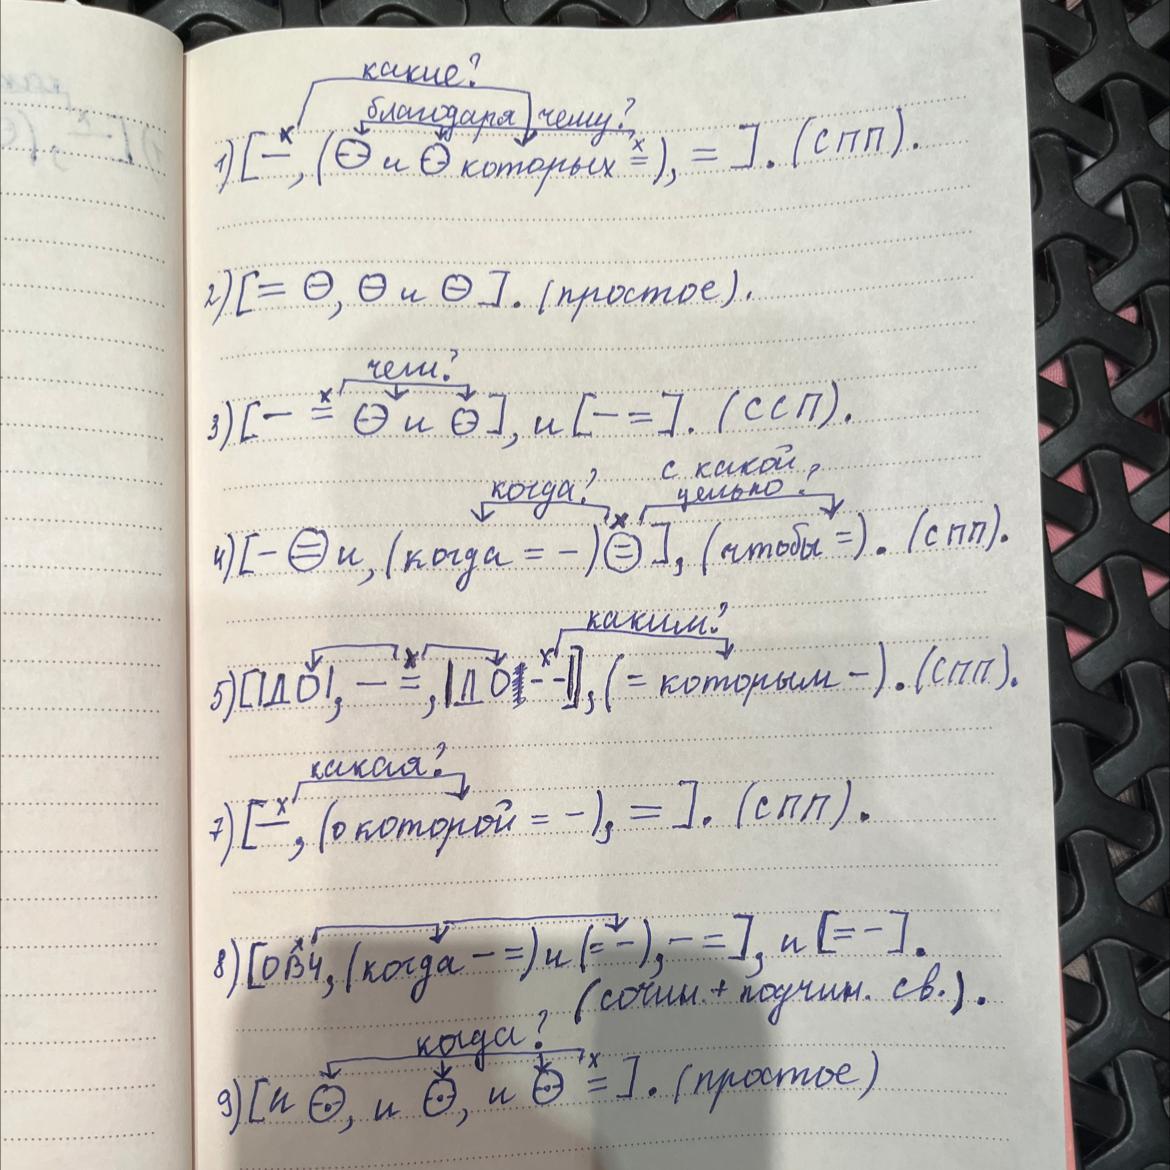 какие?
благодаря чему?
1) [—, (⊖ и ⊖ которых =), = ]. (СПП).
2) [= ⊖, ⊖ и ⊖ ]. (простое).
чем?
3) [— = ⊖ и ⊖ ], и [— = ]. (ССП).
когда? с какой целью?
4) [— ⊜ и, (когда = —) ⊜ ], (чтобы =). (СПП).
каким?
5) [|ДО|, — =, |ДО| - - ], (= которым —). (СПП).
какая?
7) [—, (о которой = —), = ]. (СПП).
8) [ОВЧ, (когда — =) и (= —), — = ], и [= — ].
(сочин. + подчин. св.).
когда?
9) [и ⊖, и ⊖, и ⊖ = ]. (простое)